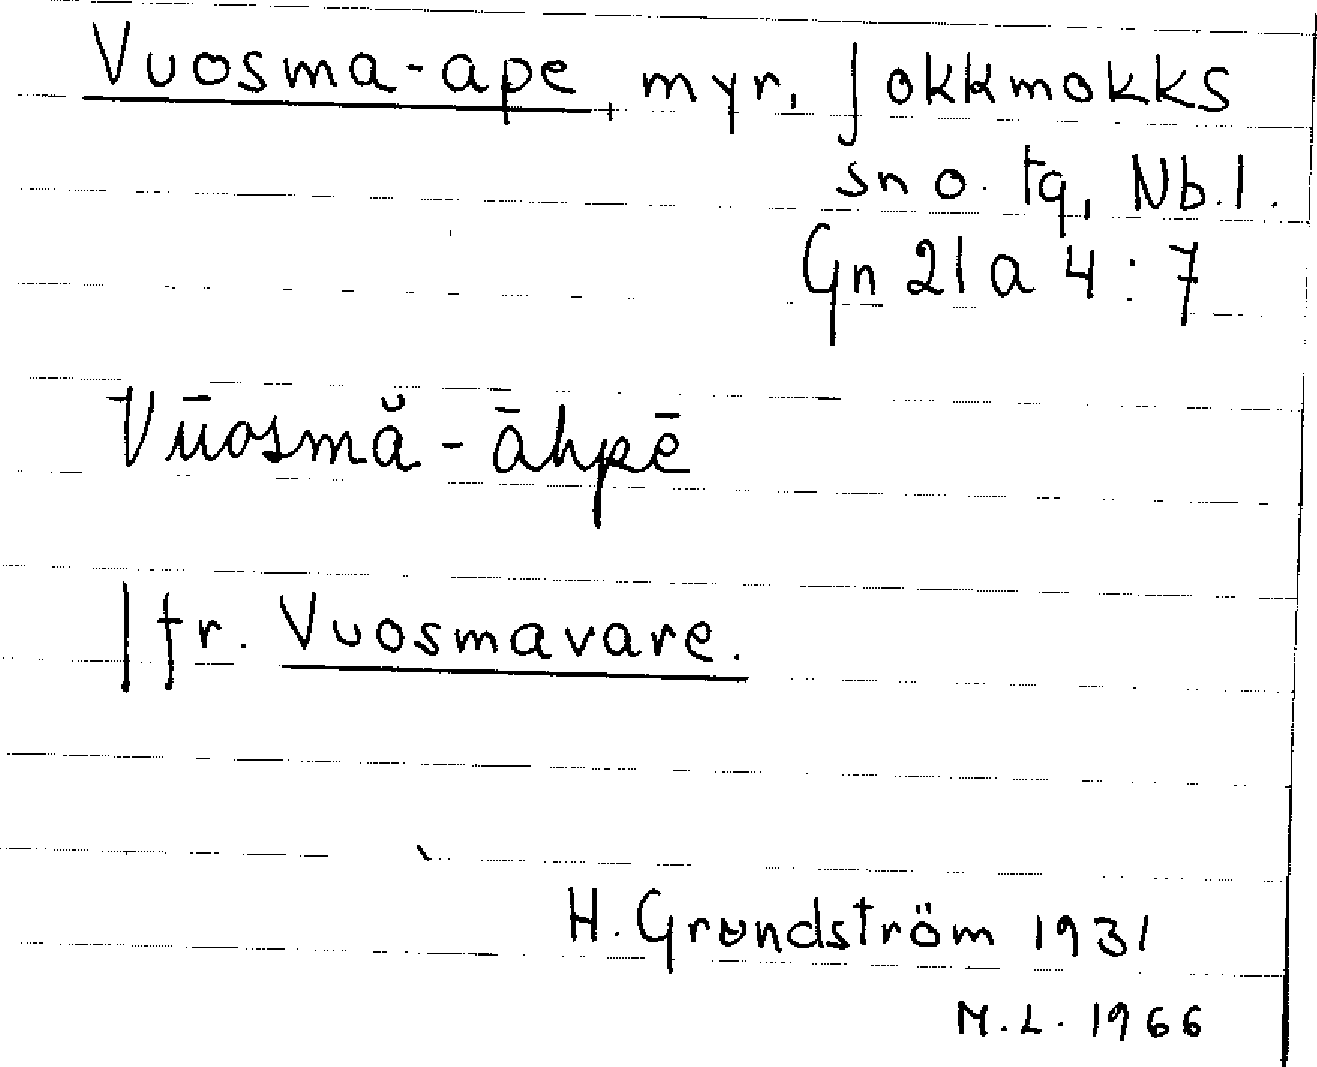 Vuosma-ape, myr, Jokkmokks
sn o. tg, Nb. l.
Gn 21 a 4:7
Vūosmă - āhpē
Jfr. Vuosmavare.
H. Grundström 1931
M.L. 1966